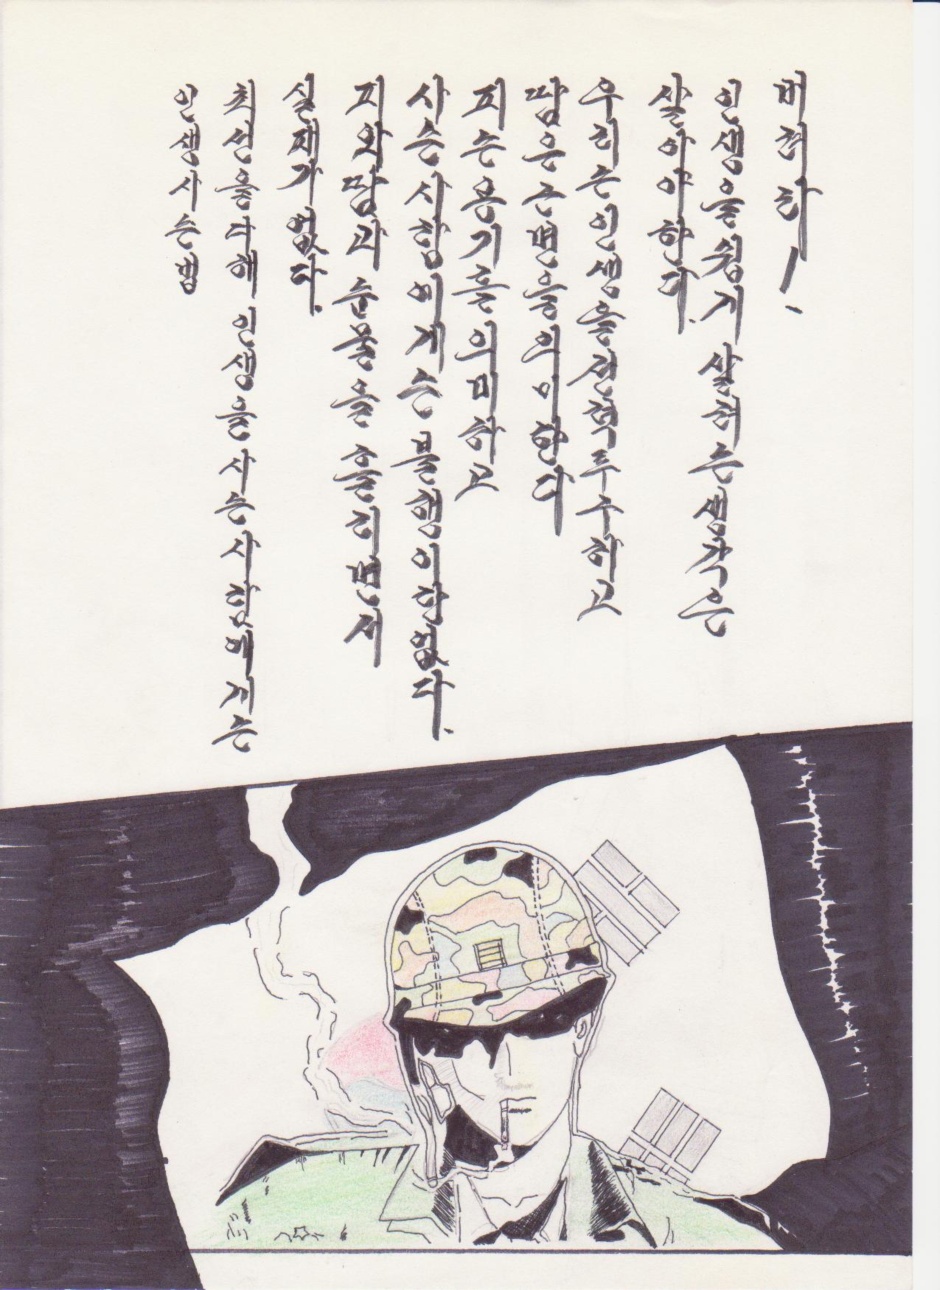 인생사는법
최선을 다해 인생을 사는 사람에게는
실패가 없다.
피와 땀과 눈물을 흘리면서
사는 사람에게는 불행이란 없다.
피는 용기를 의미하고
땀은 근면을 의미한다
우리는 인생을 전력투구하고
살아야 한다.
인생을 쉽게 살려는 생각은
버려라!